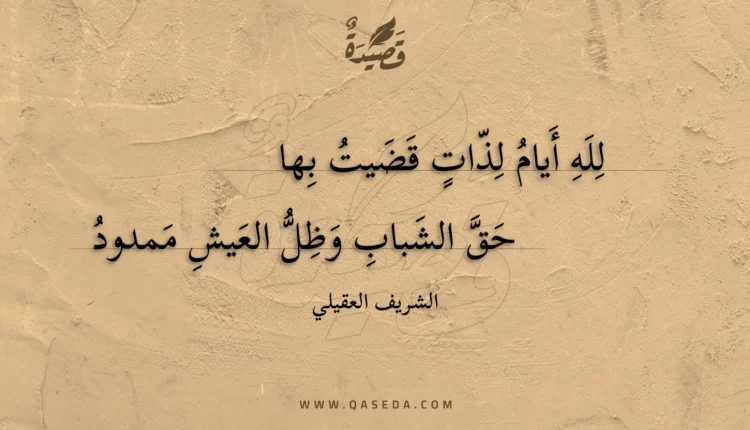 قَصِيدَةٌ
لِلَهِ أَيامُ لِذّاتٍ قَضَيتُ بِها
حَقَّ الشَبابِ وَظِلُّ العَيشِ مَمدودُ
الشريف العقيلي
WWW.QASEDA.COM